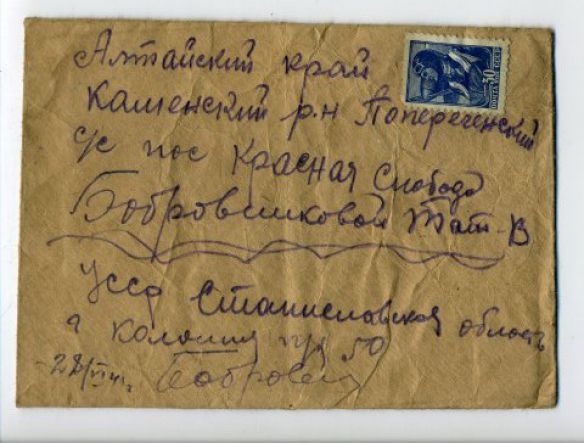 Алтайский край
Каменский р.н Попереченский
с/с пос Красная Слобода
Бобровниковой Тат. В
Усср Станиславская область
г Коломия п/я 50
28/VI 41г.
30
ПОЧТА СССР